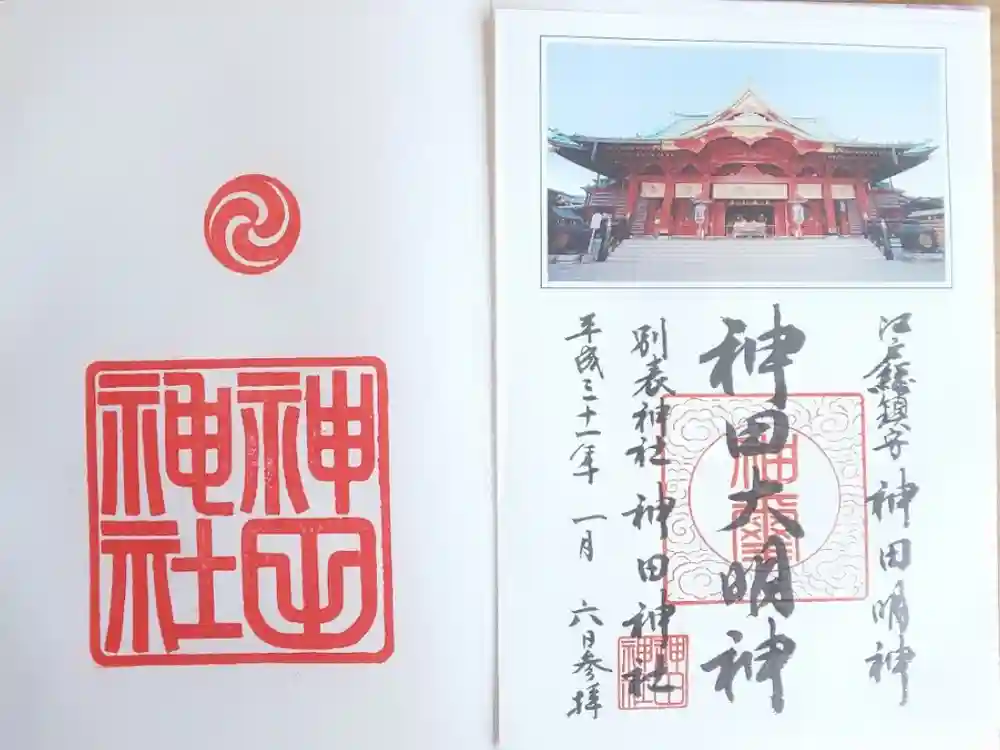 江戸總鎮守 神田明神
神田大明神
別表神社 神田神社
平成三十一年 一月 六日参拝
神田
神社
神田
神社